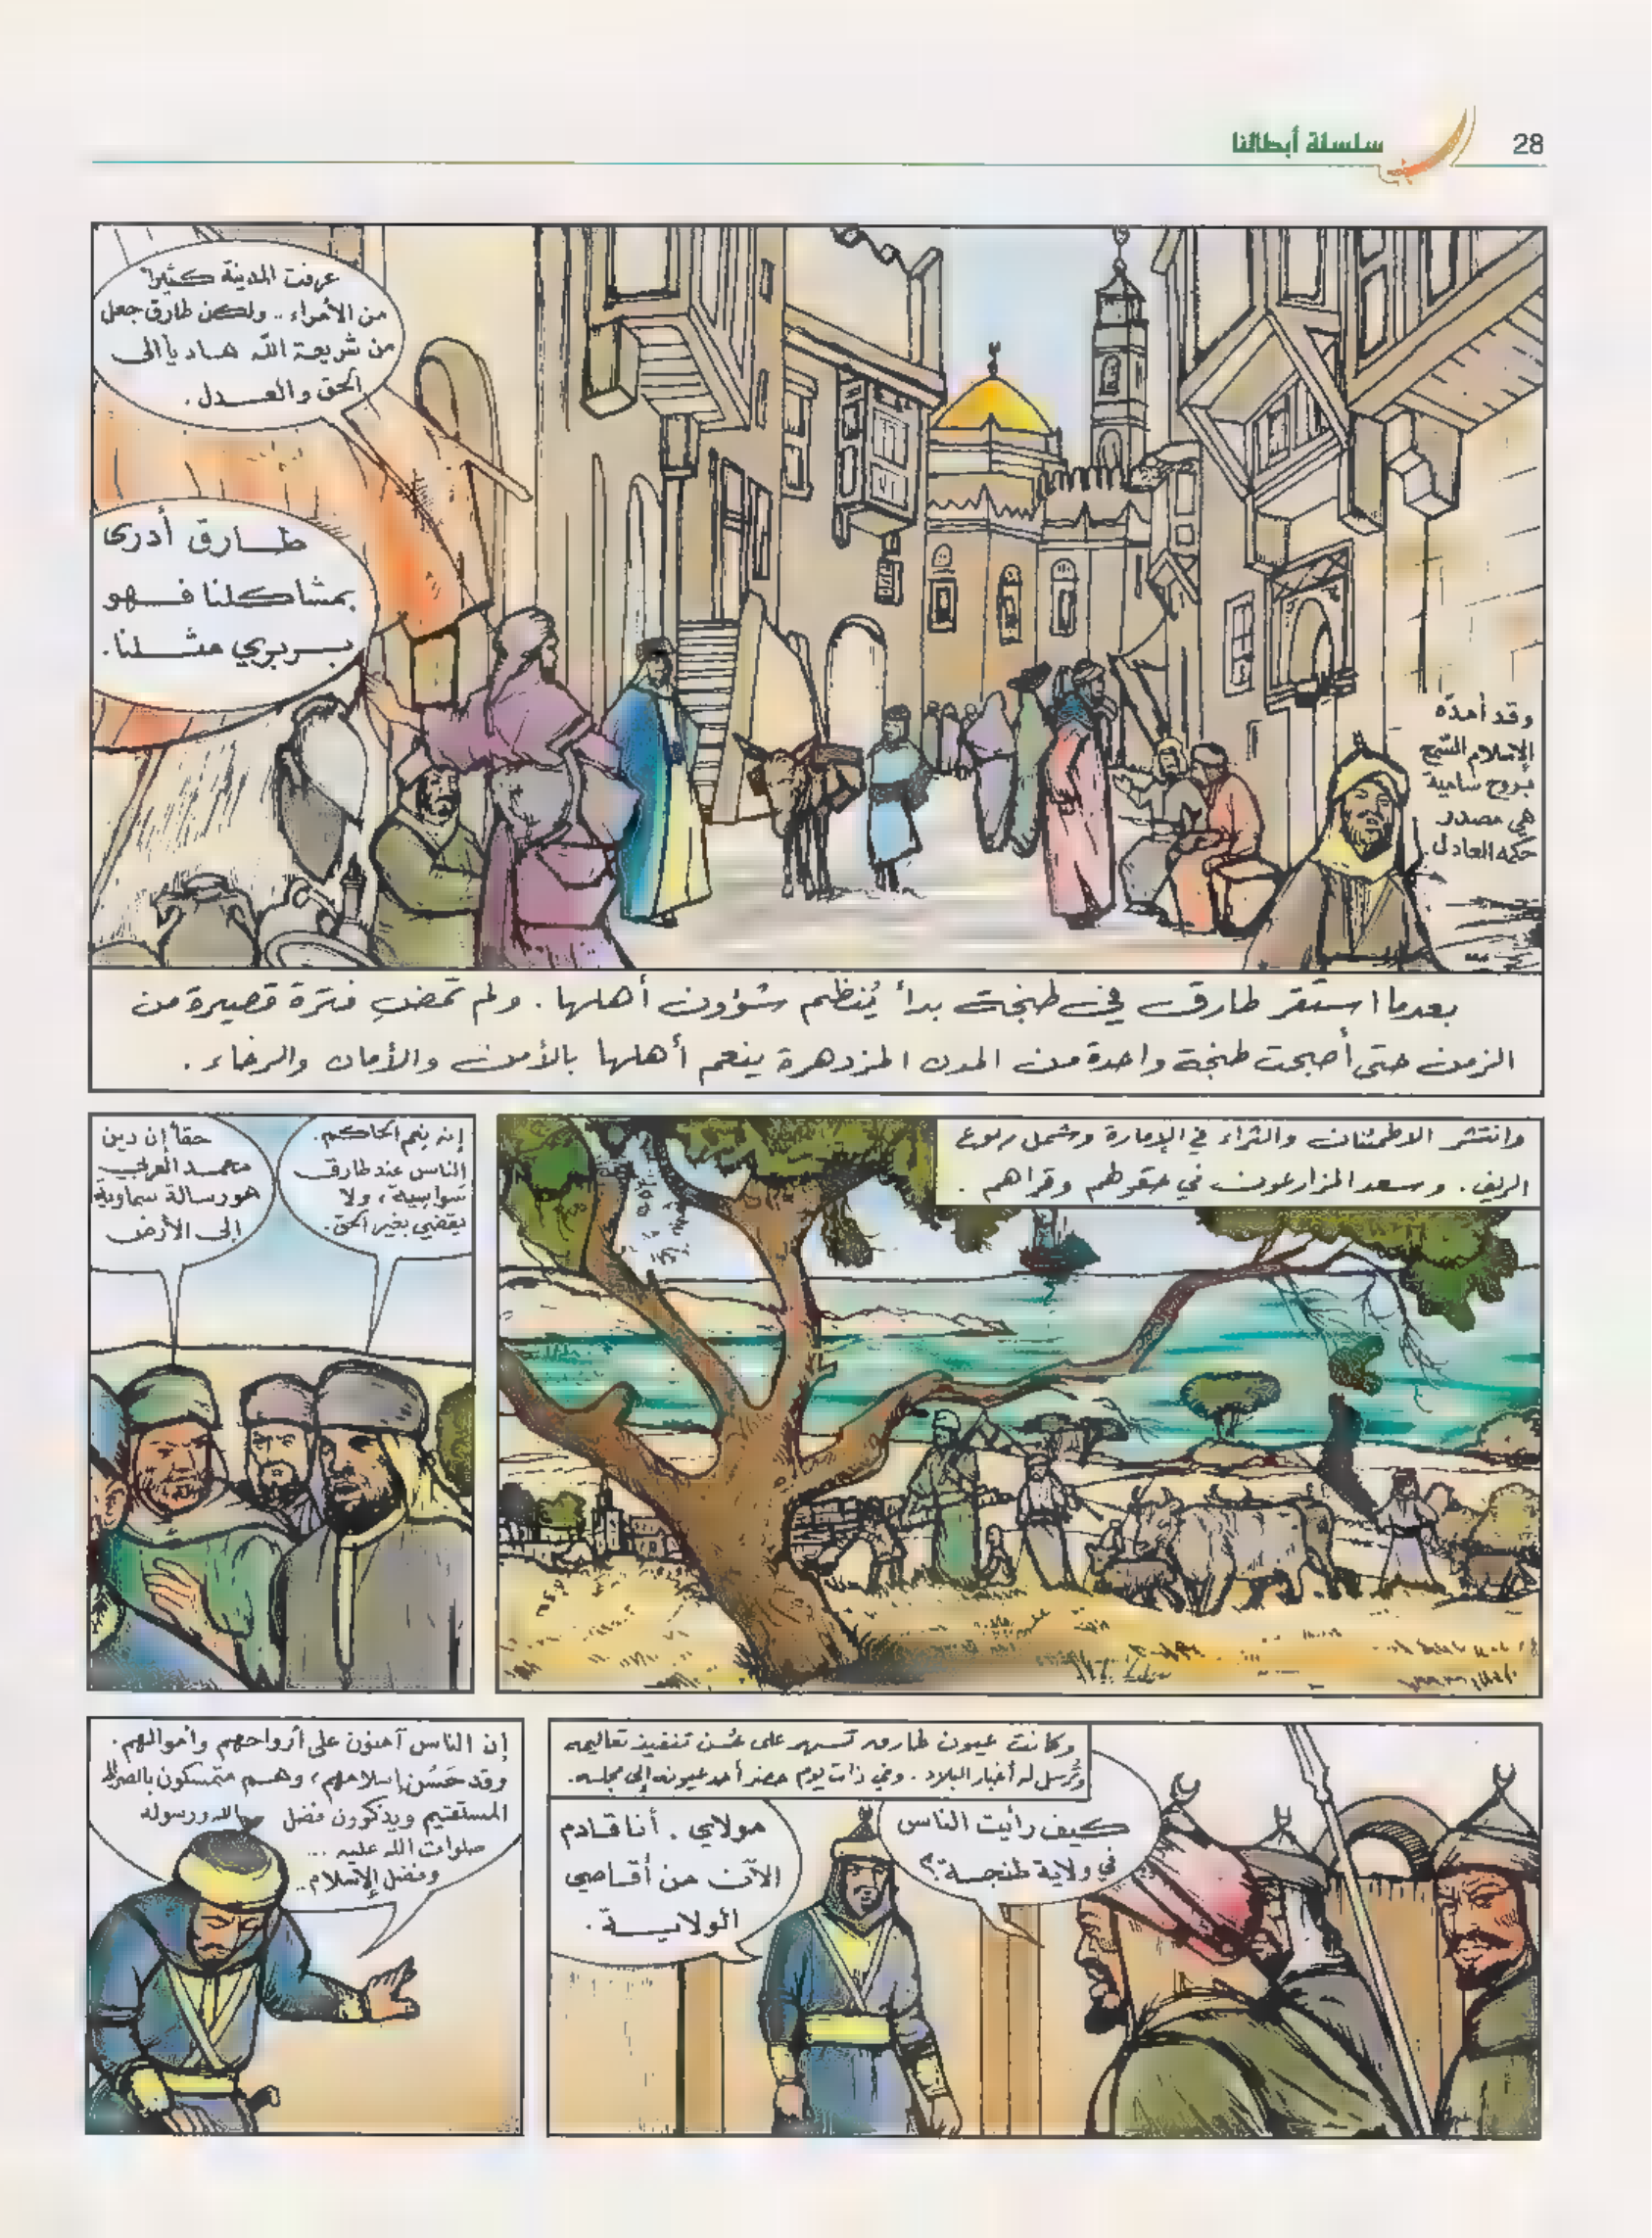 28
سلسلة أبطالنا
عرفت المدينة كثيراً
من الأمراء .. ولكن طارق جعل
من شريعة الله هادياً الى
الحق والعدل .
طارق أدرى
بمشاكلنا فهو
بربري مثلنا .
وقد أمدّه
الإسلام السّمح
بروح سامية
هي مصدر
حكمه العادل .
بعدما استقر طارق في طنجة بدأ يُنظم شؤون أهلها . ولم تمضِ فترة قصيرة من
الزمن حتى أصبحت طنجة واحدة من المدن المزدهرة ينعم أهلها بالأمن والأمان والرخاء .
وانتشر الاطمئنان والثراء في الإمارة وشمل ربوع
الريف . وسعد المزارعون في حقولهم وقراهم .
إنه نِعم الحاكم .
الناس عند طارق
سواسية ، ولا
يقضي بغير الحق .
حقاً إن دين
محمد العربي
هو رسالة سماوية
إلى الأرض
وكانت عيون طارق تسهر على حُسن تنفيذ تعاليمه
وتُرسل له أخبار البلاد . وفي ذات يوم حضر أحد عيونه إلى مجلسه .
كيف رأيت الناس
في ولاية طنجة ؟
مولاي . أنا قادم
الآن من أقاصي
الولاية .
إن الناس آمنون على أرواحهم وأموالهم .
وقد حَسُن إسلامهم ، وهم متمسكون بالصراط
المستقيم ويذكرون فضل الله ورسوله
صلوات الله عليه ...
وفضل الإسلام ..